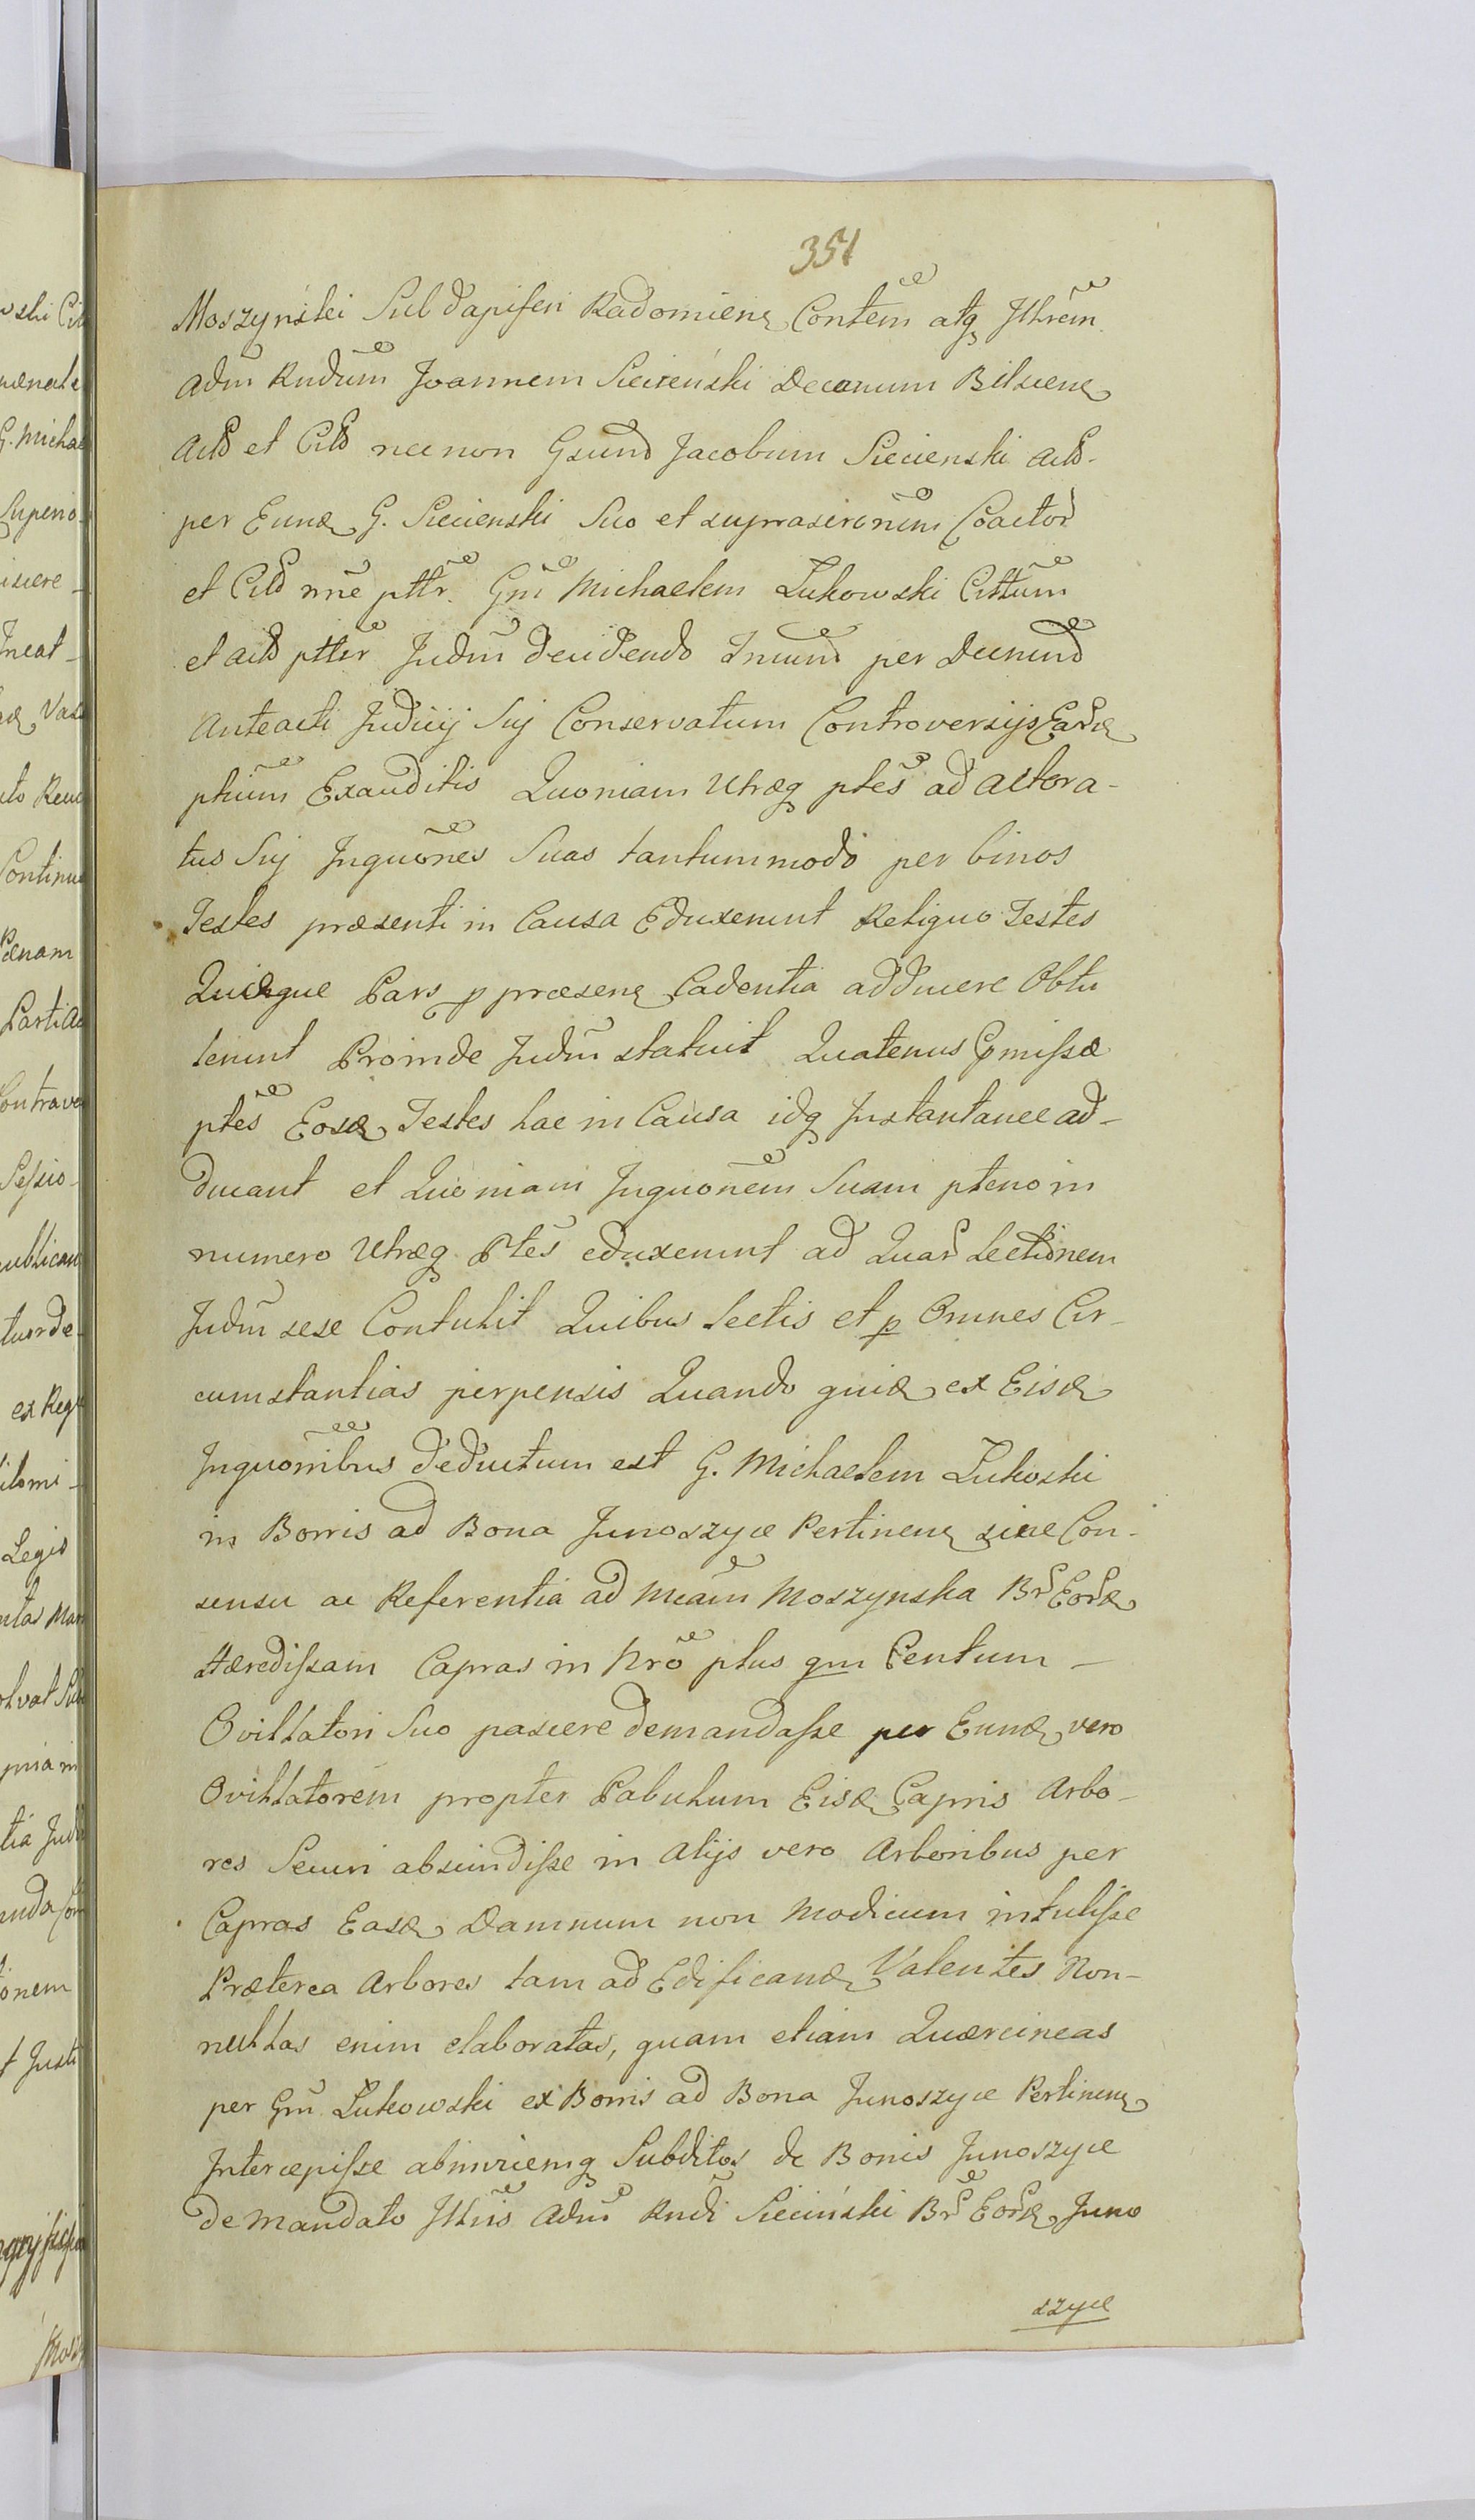 351
Moszyński Subdapiferi Radomien Contem atq Jllrem
adm Rndum Joannem Siecieński Decanum Bilscien
Actō et Citō necnon Gsund Jacobum Siecienski actō
per Eund G. Siecienski Suo et suprascrinem Coactor
et Citō nne ptlr. Gm Michaelem Lukowski Cittum
et actō ptler Judm decidendo Inund per Decunnd
Anteacti Judicij Suj Conservatum Controversijs Eard
ptium Exauditis Quoniam Utræq ptes ad actora-
tus Suj Jnquones Suas tantummodo per binos
Testes præsenti in Causa Eduxerunt Reliquo Testes
Quæque Pars p præsen Cadentia adducere Obtu
lerunt Proinde Judm statuit Quatenus Præmissæ
ptes Eosd Testes hac in Causa idq Jnstantanee ad-
ducant et Quoniam Jnquonem Suam pleno in
numero Utræq Ptes eduxerunt ad Quar Lectionem
Judm sese Contulit Quibus Lectis et p Omnes Cir-
cumstantias perpensis Quando quid ex Eisd
Jnquonibus deductum est G. Michaelem Lukoski
in Borris ad Bona Junoszyce Pertinen sine Con-
sensu ac Referentia ad Mcam Moszynska Br Eord
Hæredissam Capras in Nro plus qm Centum —
Ovillatori Suo pascere demandasse per Eund vero
Ovillatorem propter Pabulum Eisd Capris Arbo-
res Securi abscindisse in Alijs vero Arboribus per
Capras Easd Damnum non Modicum intulisse
Præterea Arbores tam ad Edificand Valentes Non-
nullas enim elaboratas, quam etiam Quærcineas
per Gm Lukowski ex Borris ad Bona Junoszyce Pertinen
Jntercepisse abinvicemq Subditos de Bonis Junoszyce
de Mandato Jllris Adm Rndi Sieciński Br Eord Juno
szyce